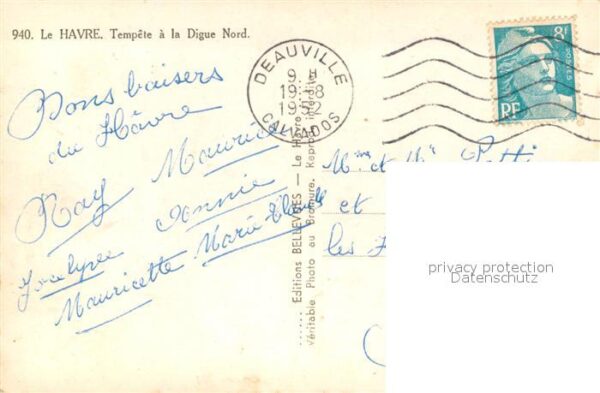 940. Le HAVRE. Tempête à la Digue Nord.
DEAUVILLE
9 H
19-8
1952
CALVADOS
8F
POSTES
RF
Bons baisers
du Hâvre
Ray Maurice
Jocelyne Annie
Mauricette Marie Claude
Editions BELLEVUES — Le Havre
Véritable Photo au Bromure. Reprod. interdite
Mme et Mr
et
les
privacy protection
Datenschutz